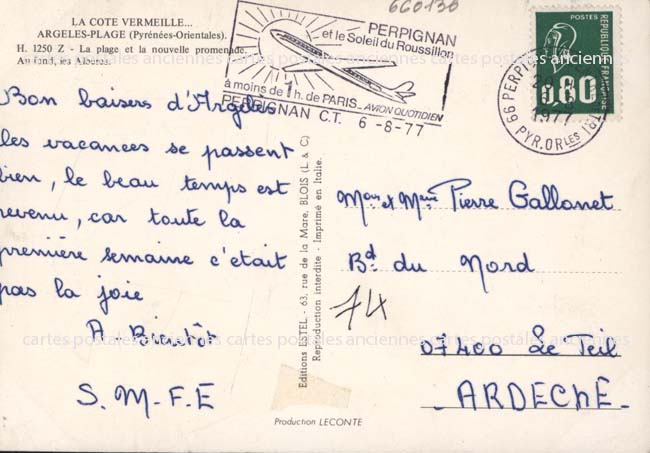 660130
LA COTE VERMEILLE...
ARGELES-PLAGE (Pyrénées-Orientales).
H. 1250 Z - La plage et la nouvelle promenade.
Au fond, les Albères.
PERPIGNAN
et le Soleil du Roussillon
à moins de 1 h. de PARIS... AVION QUOTIDIEN
PERPIGNAN C.T. 6-8-77
66 PERPIGNAN
1977
PYR. ORLES
POSTES
REPUBLIQUE FRANÇAISE
0,80
Bon baisers d'Argelès
les vacances se passent
bien, le beau temps est
revenu, car toute la
première semaine c'était
pas la joie
A-Bientôt
S.M-F.E
Editions ESTEL - 63, rue de la Mare, BLOIS (L & C)
Reproduction interdite - Imprimé en Italie.
Pierre Gallonet
Bd du Nord
74
07400 Le Teil
ARDECHE
Production LECONTE
cartes postales anciennes cartes postales anciennes cartes postales anciennes